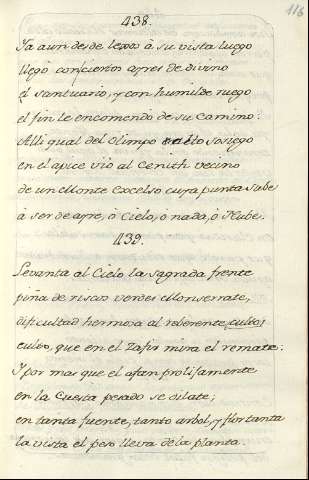 116
438.
Ya aun desde lexos à su vista luego
llegó con ciertos ayres de divino
el santuario, y con humilde ruego
el fin le encomendo de su camino:
Alli qual del Olimpo alto sosiego
en el apice vió al Cenith vecino
de un Monte Excelso cuya punta sube
à ser de ayre, ò Cielo, o nada, ò Nube.
439.
Levanta al Cielo la sagrada frente
piña de riscos verdes Monserrate,
dificultad hermosa al reverente
culto, que en el Zafir mira el remate:
Y por mas que el afan prolijamente
en la Cuesta pesado se dilate;
en tanta fuente, tanto arbol, y flor tanta
la vista el peso lleva de la planta.